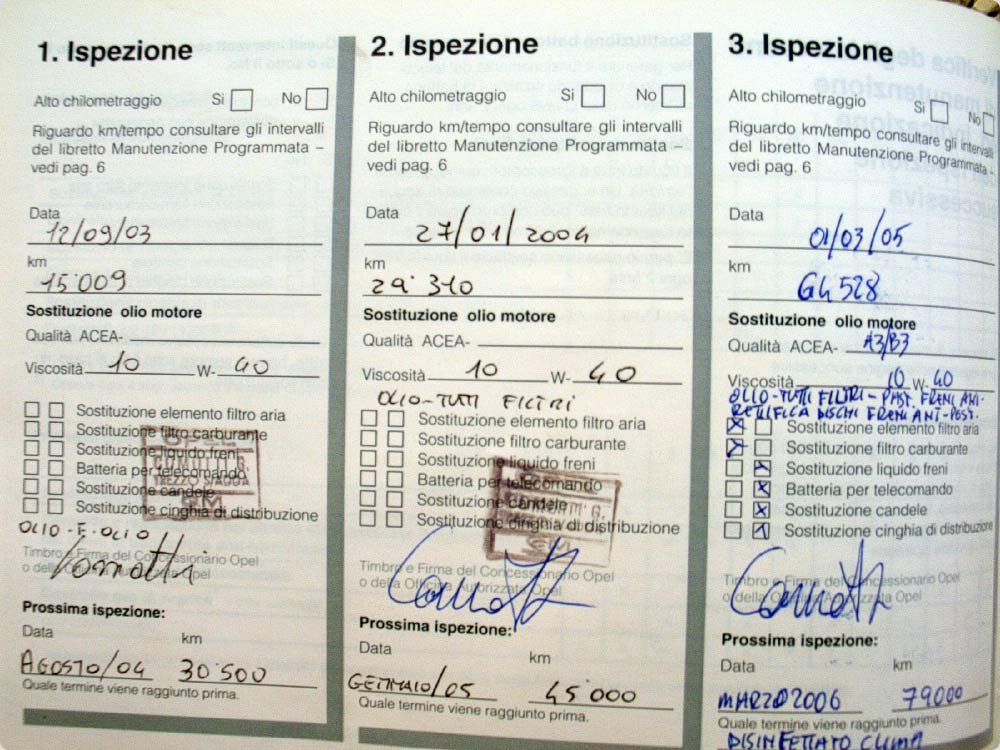 1. Ispezione
Alto chilometraggio Si No
Riguardo km/tempo consultare gli intervalli
del libretto Manutenzione Programmata –
vedi pag. 6
Data
12/09/03
km
15'009
Sostituzione olio motore
Qualità ACEA-
Viscosità 10 W- 40
Sostituzione elemento filtro aria
Sostituzione filtro carburante
Sostituzione liquido freni
Batteria per telecomando
Sostituzione candele
Sostituzione cinghia di distribuzione
OPEL
TREZZO S/ADDA
OLIO - F. OLIO
Timbro e Firma del Concessionario Opel
o della Officina Autorizzata Opel
Prossima ispezione:
Data km
AGOSTO/04 30'500
Quale termine viene raggiunto prima.
2. Ispezione
Alto chilometraggio Si No
Riguardo km/tempo consultare gli intervalli
del libretto Manutenzione Programmata –
vedi pag. 6
Data
27/01/2004
km
29'310
Sostituzione olio motore
Qualità ACEA-
Viscosità 10 W- 40
OLIO-TUTTI FILTRI
Sostituzione elemento filtro aria
Sostituzione filtro carburante
Sostituzione liquido freni
Batteria per telecomando
Sostituzione candele
Sostituzione cinghia di distribuzione
Timbro e Firma del Concessionario Opel
o della Officina Autorizzata Opel
Prossima ispezione:
Data km
GENNAIO/05 45'000
Quale termine viene raggiunto prima.
3. Ispezione
Alto chilometraggio Si No
Riguardo km/tempo consultare gli intervalli
del libretto Manutenzione Programmata –
vedi pag. 6
Data
01/03/05
km
64528
Sostituzione olio motore
Qualità ACEA- A3/B3
Viscosità 10 W- 40
OLIO-TUTTI FILTRI-PAST. FRENI ANT-
RETTIFICA DISCHI FRENI ANT-POST.
Sostituzione elemento filtro aria
Sostituzione filtro carburante
Sostituzione liquido freni
Batteria per telecomando
Sostituzione candele
Sostituzione cinghia di distribuzione
Timbro e Firma del Concessionario Opel
o della Officina Autorizzata Opel
Prossima ispezione:
Data km
MARZO 2006 79000
Quale termine viene raggiunto prima.
DISINFETTATO CLIMA